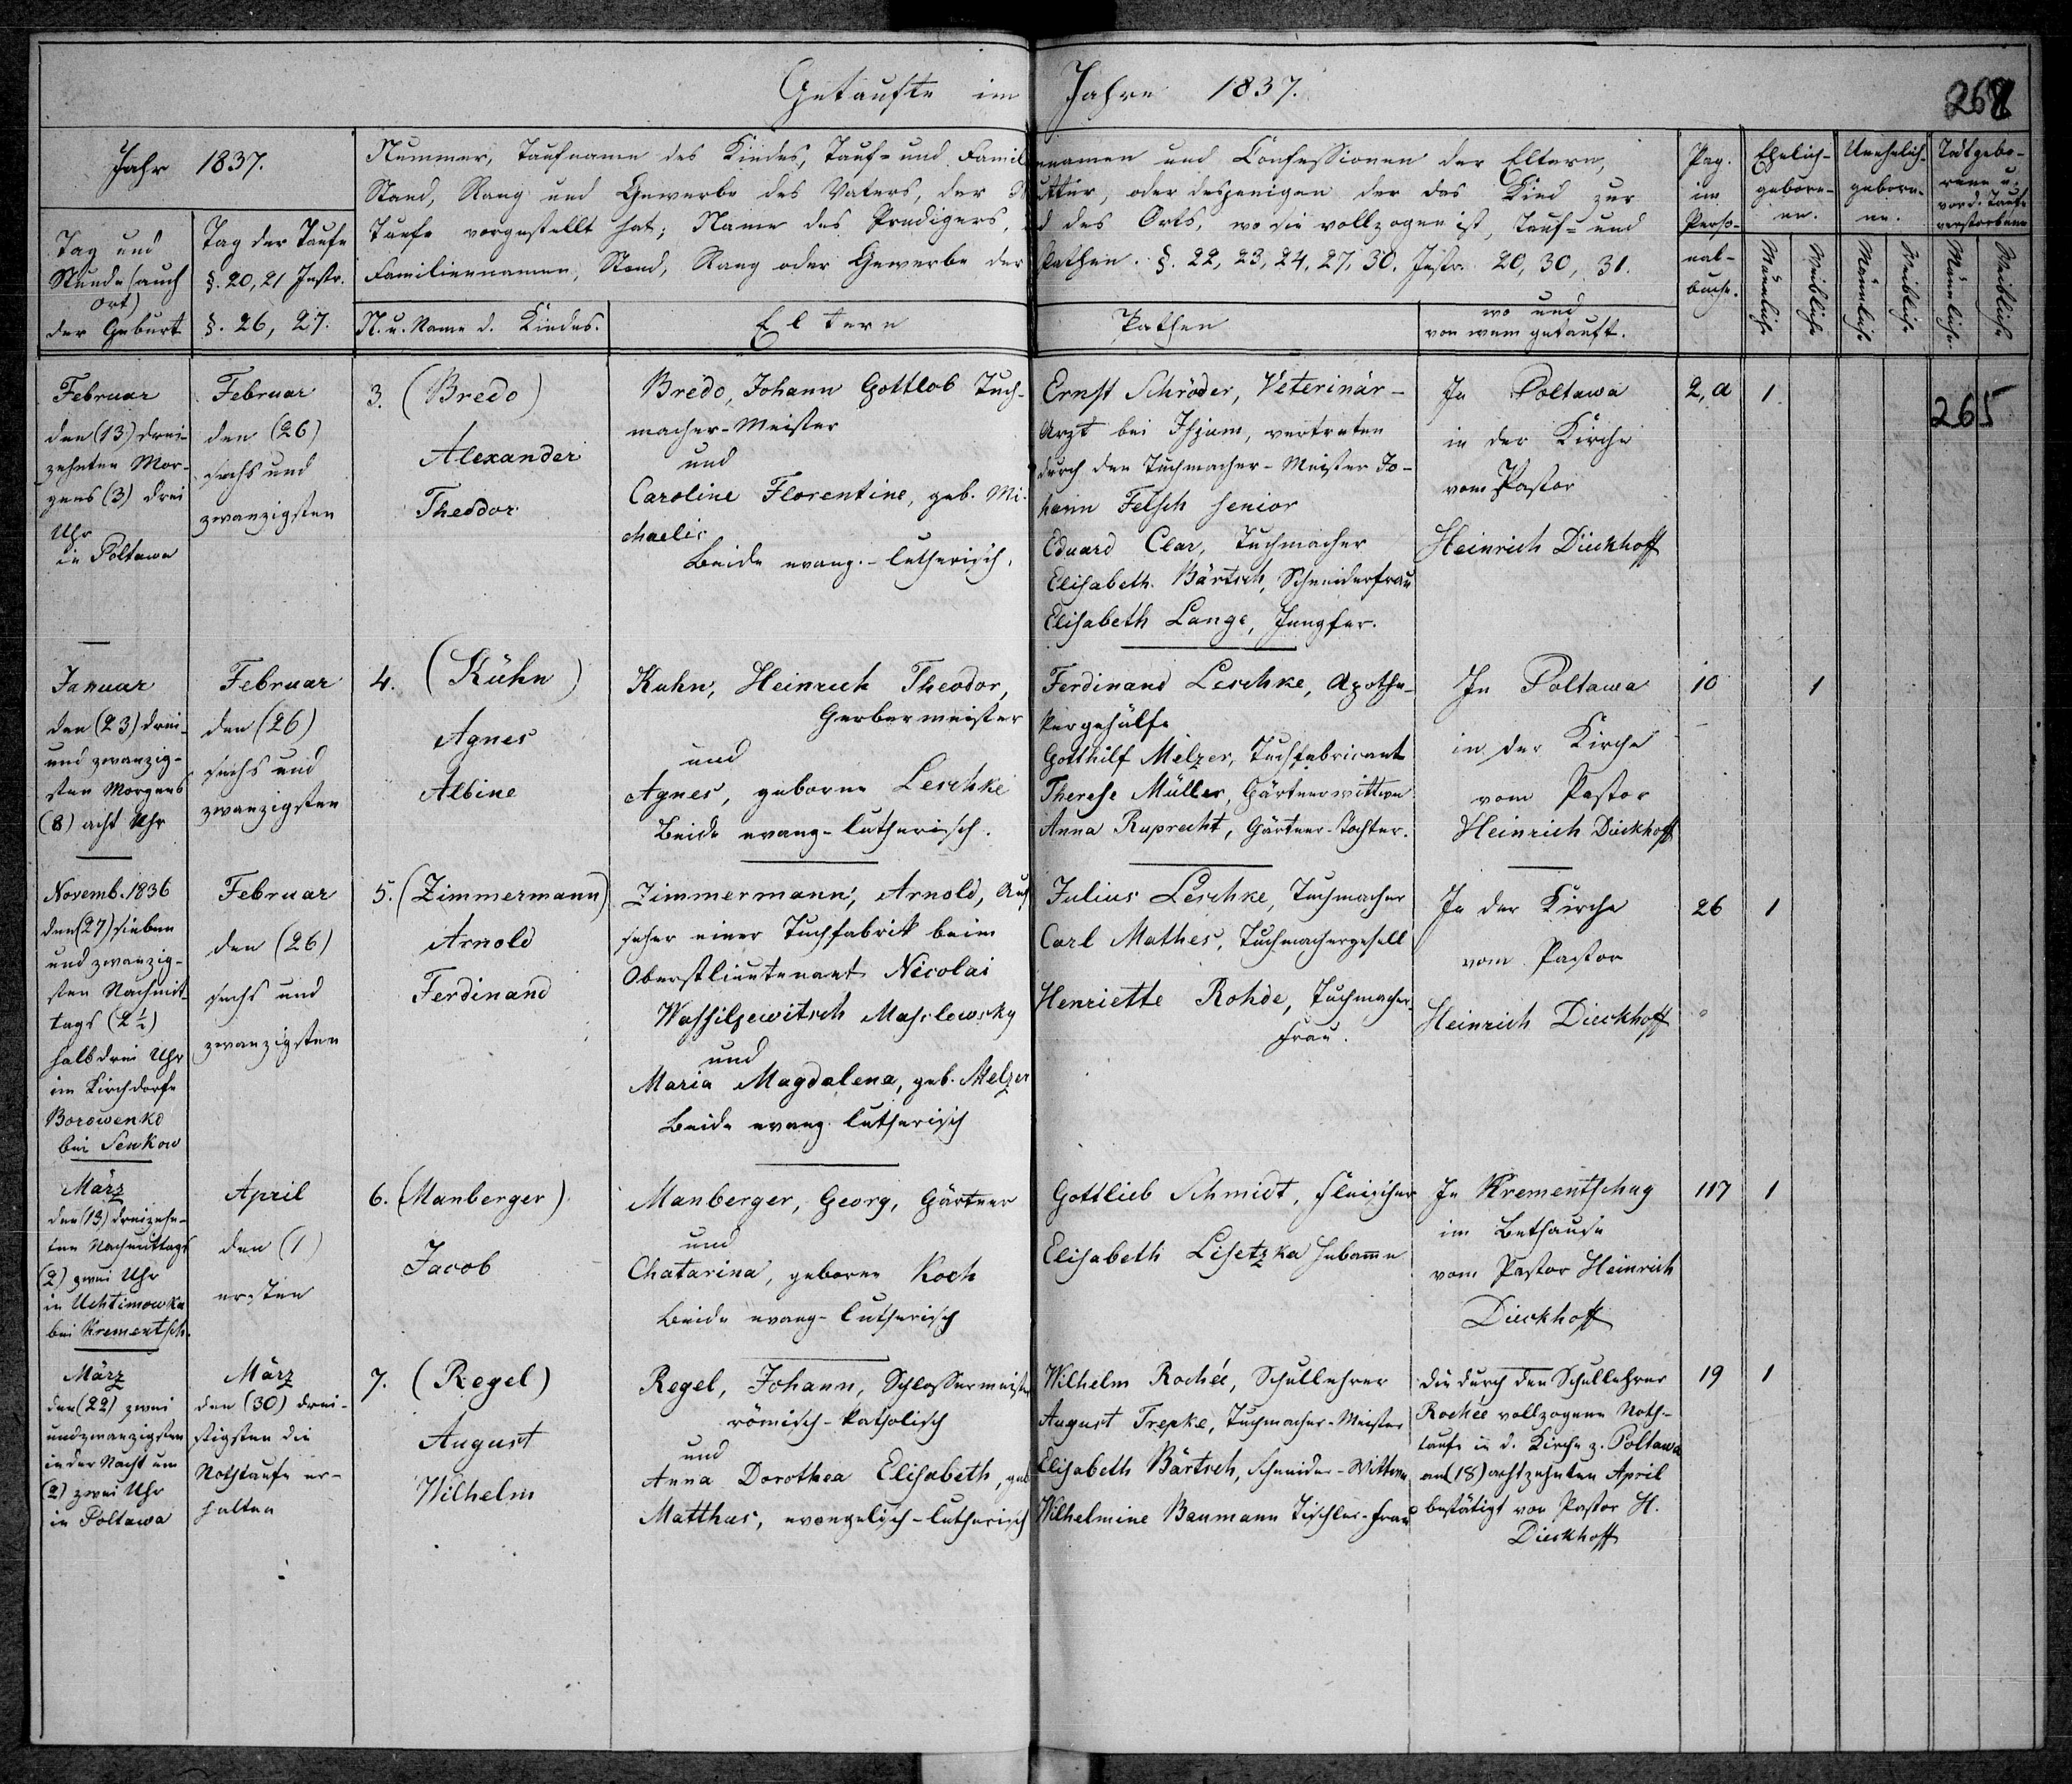 Getaufte im Jahre 1837.
265
Jahr 1837.
Tag und
Stunde (auch
Ort)
der Geburt
Tag der Taufe
§. 20, 21 Instr.
§. 26, 27.
Nummer, Taufname des Kindes, Tauf- und Familiennamen und Confessionen der Eltern,
Stand, Rang und Gewerbe des Vaters, der Mutter, oder desjenigen der das Kind zur
Taufe vorgestellt hat; Name des Predigers, und des Orts, wo sie vollzogen ist, Tauf- und
Familiennamen, Stand, Rang oder Gewerbe der Pathen. §. 22, 23, 24, 27, 30. Instr. 20, 30, 31.
N. u. Name d. Kindes.
Eltern
Pathen
wo und
von wem getauft.
Pag.
im
Perso-
nal-
buche.
Ehelich-
gebore-
ne.
Männliche
Weibliche
Unehelich-
gebore-
ne.
Männliche
Weibliche
Todtgebo-
rene u.
vor d. Taufe
verstorbene
Männliche
Weibliche
Februar
den (13) drei-
zehnten Mor-
gens (3) drei
Uhr
in Poltawa
Februar
den (26)
sechs und
zwanzigsten
3. (Bredo)
Alexander
Theodor
Bredo, Johann Gottlob Tuch-
macher-Meister
und
Caroline Florentine, geb. Mi-
chaelis
Beide evang.-lutherisch.
Ernst Schröder, Veterinär-
Arzt bei Isjum, vertreten
durch den Tuchmacher-Meister Jo-
hann Felsch senior
Eduard Clar, Tuchmacher
Elisabeth Bärtsch, Schneiderfrau
Elisabeth Lange, Jungfer.
In Poltawa
in der Kirche
vom Pastor
Heinrich Dieckhoff
2, a
1
Januar
den (23) drei-
und zwanzig-
sten Morgens
(8) acht Uhr
Februar
den (26)
sechs und
zwanzigsten
4. (Kühn)
Agnes
Albine
Kuhn, Heinrich Theodor,
Gerbermeister
und
Agnes, geborne Leschke
Beide evang-lutherisch.
Ferdinand Leschke, Apothe-
kergehülfe
Gotthilf Melzer, Tuchfabricant
Therese Müller, Gärtnerwittwe
Anna Ruprecht, Gärtner-Tochter.
In Poltawa
in der Kirche
vom Pastor
Heinrich Dieckhoff
10
1
Novemb. 1836
den (27) sieben
und zwanzig-
sten Nachmit-
tags (2½)
halb drei Uhr
im Kirchdorfe
Borowenko
bei Senkow
Februar
den (26)
sechs und
zwanzigsten
5. (Zimmermann)
Arnold
Ferdinand
Zimmermann, Arnold, Auf
seher einer Tuchfabrik beim
Oberstlieutenant Nicolai
Wassiljewitsch Maslewsky
und
Maria Magdalena, geb. Melzer
Beide evang. lutherisch
Julius Leschke, Tuchmacher
Carl Mathes, Tuchmachergesell
Henriette Rohde, Tuchmacher-
frau.
In der Kirche
vom Pastor
Heinrich Dieckhoff
26
1
März
den (13) dreizehn-
ten Nachmittags
(2) zwei Uhr
in Uchtimowka
bei Krementsch.
April
den (1)
ersten
6. (Manberger)
Jacob
Manberger, Georg, Gärtner
und
Chatarina, geborne Koch
Beide evang-lutherisch
Gottlieb Schmidt, Fleischer
Elisabeth Lisetzka Hebamme
In Krementschug
im Bethause
vom Pastor Heinrich
Dieckhoff
117
1
März
den (22) zwei
undzwanzigsten
in der Nacht um
(2) zwei Uhr
in Poltawa
März
den (30) drei-
ssigsten die
Nothtaufe er-
halten
7. (Regel)
August
Wilhelm
Regel, Johann, Schlossermeister
römisch-katholisch
und
Anna Dorothea Elisabeth, geb
Matthus, evangelisch-lutherisch
Wilhelm Rochée, Schullehrer
August Trepke, Tuchmacher-Meister
Elisabeth Bärtsch, Schneider-Wittwe
Wilhelmine Baumann Tischler-Frau
Die durch den Schullehrer
Rochée vollzogene Noth-
taufe in d. Kirche z. Poltawa
am (18) achtzehnten April
bestätigt von Pastor H.
Dieckhoff
19
1